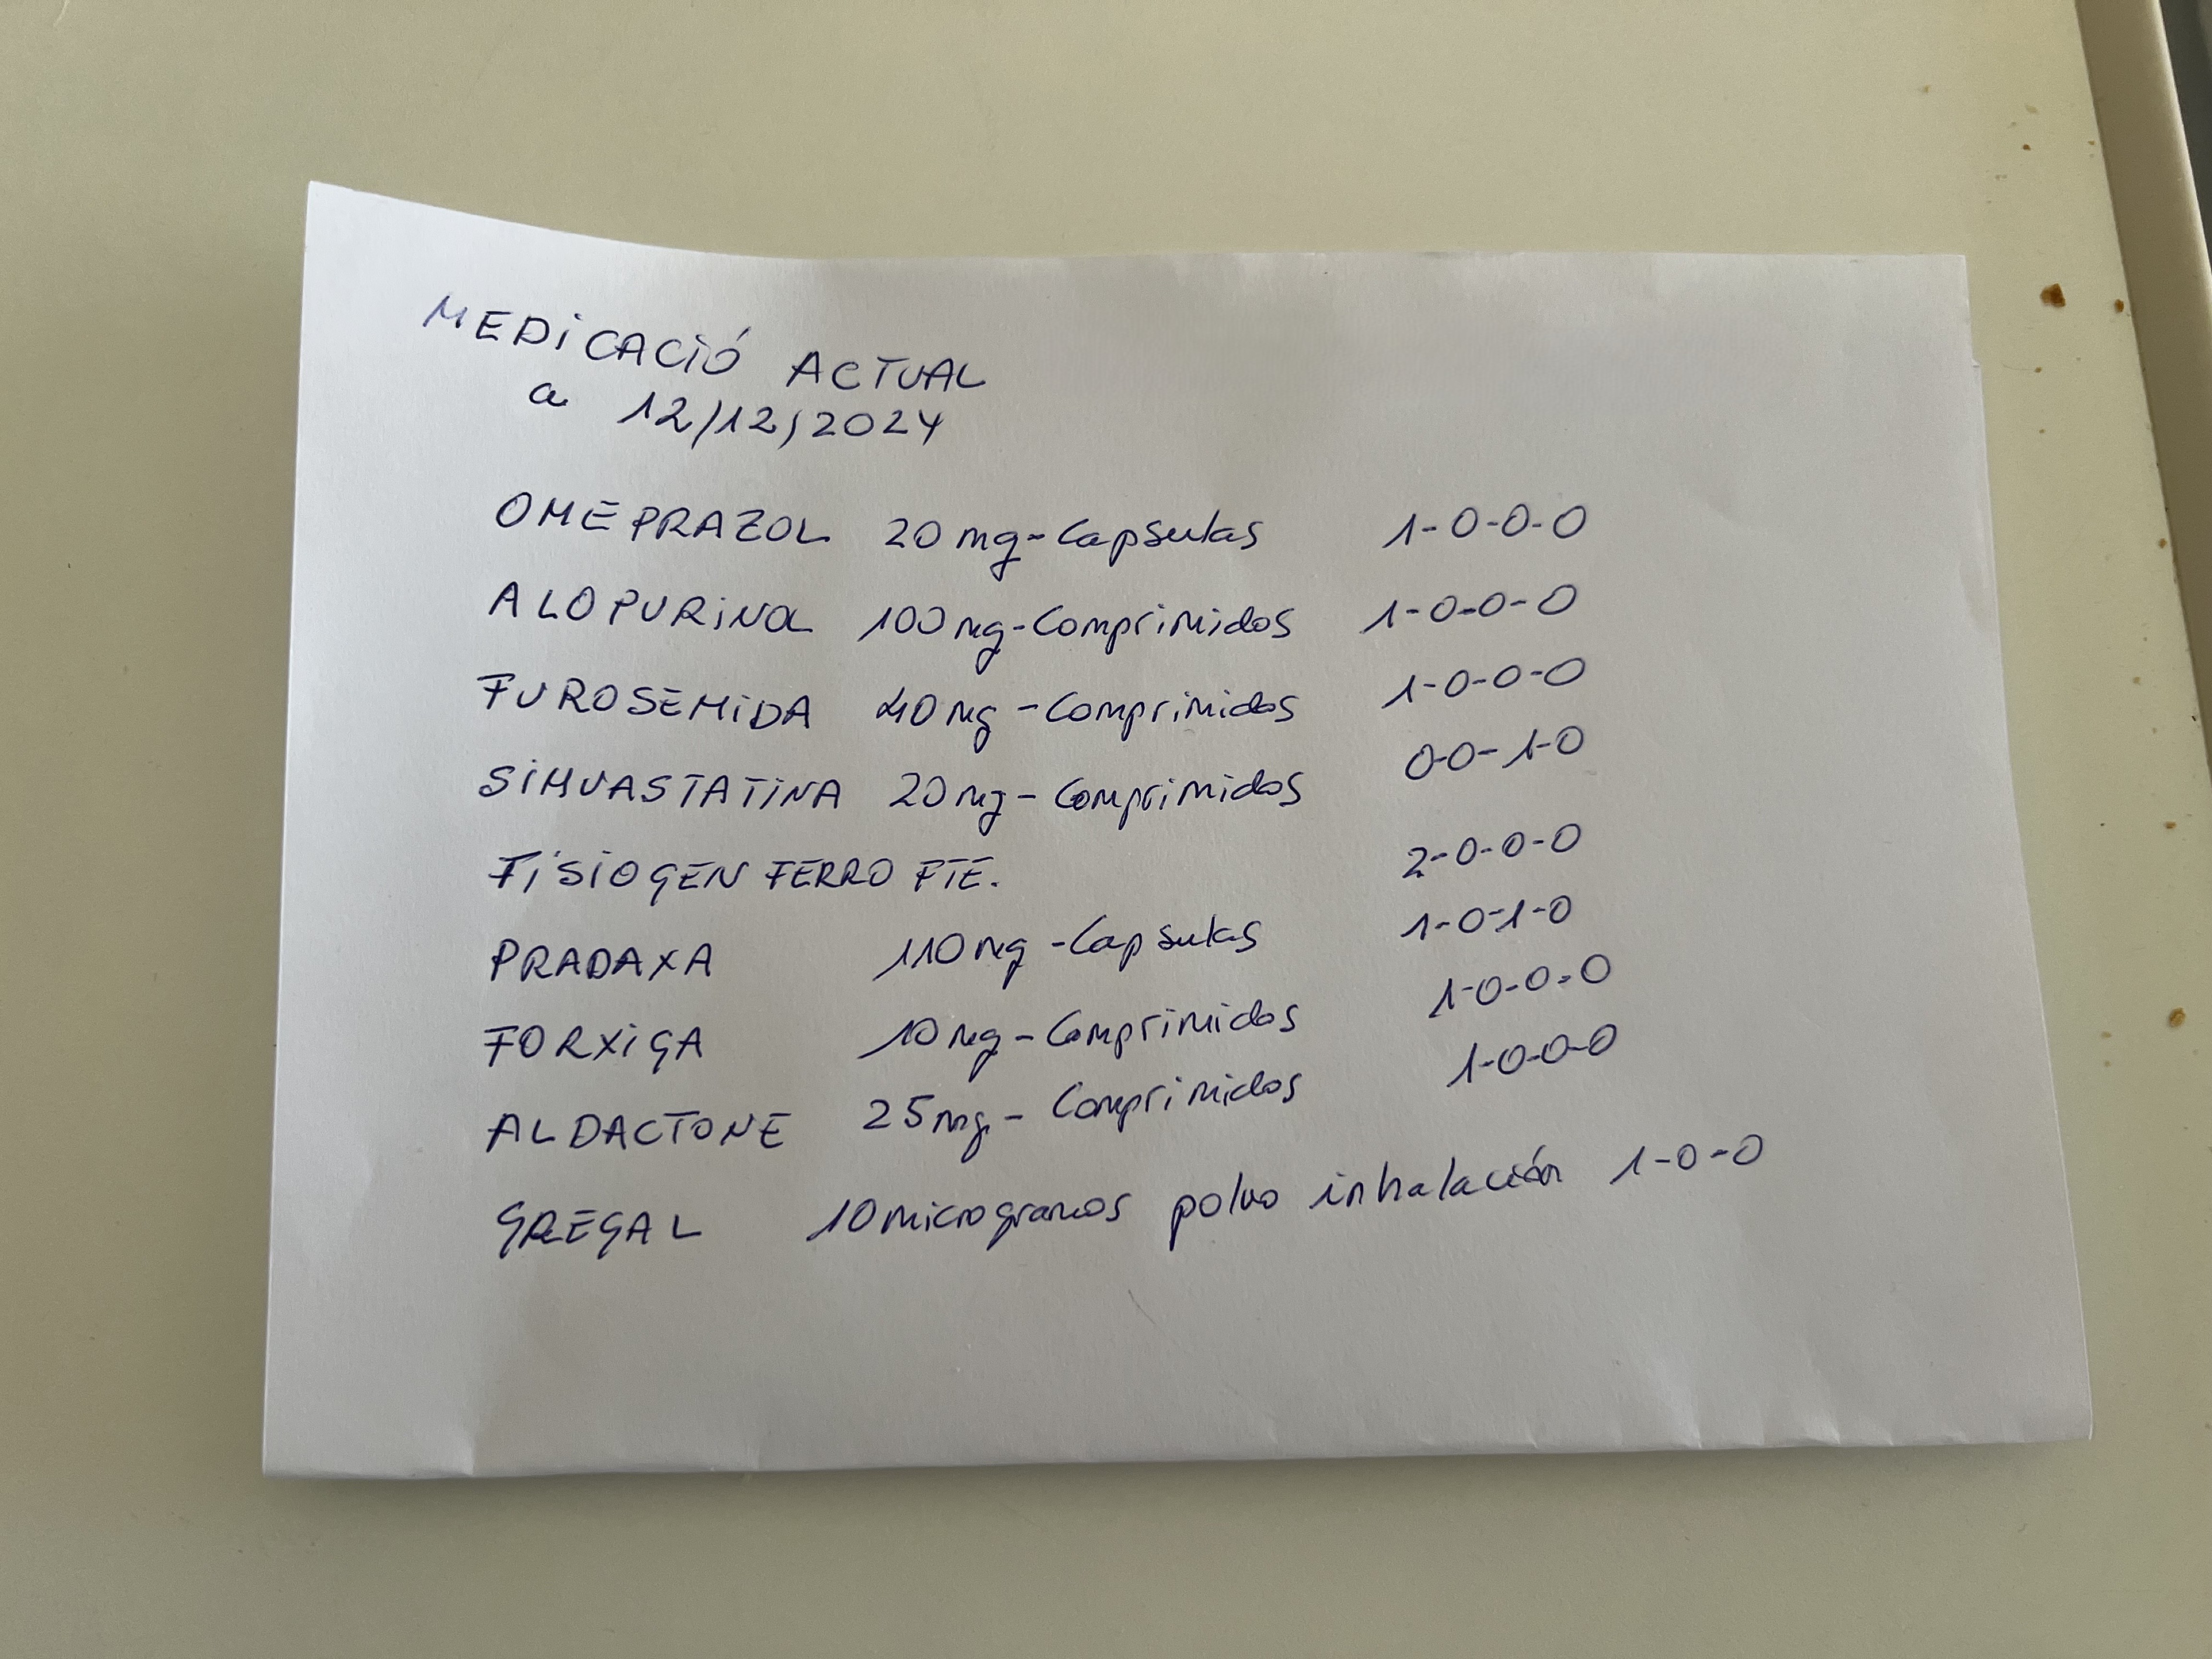 MEDICACIÓ ACTUAL
a 12/12/2024
OMEPRAZOL 20mg-Capsulas 1-0-0-0
ALOPURINOL 100mg-Comprimidos 1-0-0-0
FUROSEMIDA 40mg-Comprimidos 1-0-0-0
SIMVASTATINA 20mg-Comprimidos 0-0-1-0
FISIOGEN FERRO FTE. 2-0-0-0
PRADAXA 110mg-Capsulas 1-0-1-0
FORXIGA 10mg-Comprimidos 1-0-0-0
ALDACTONE 25mg-Comprimidos 1-0-0-0
GREGAL 10microgramos polvo inhalación 1-0-0